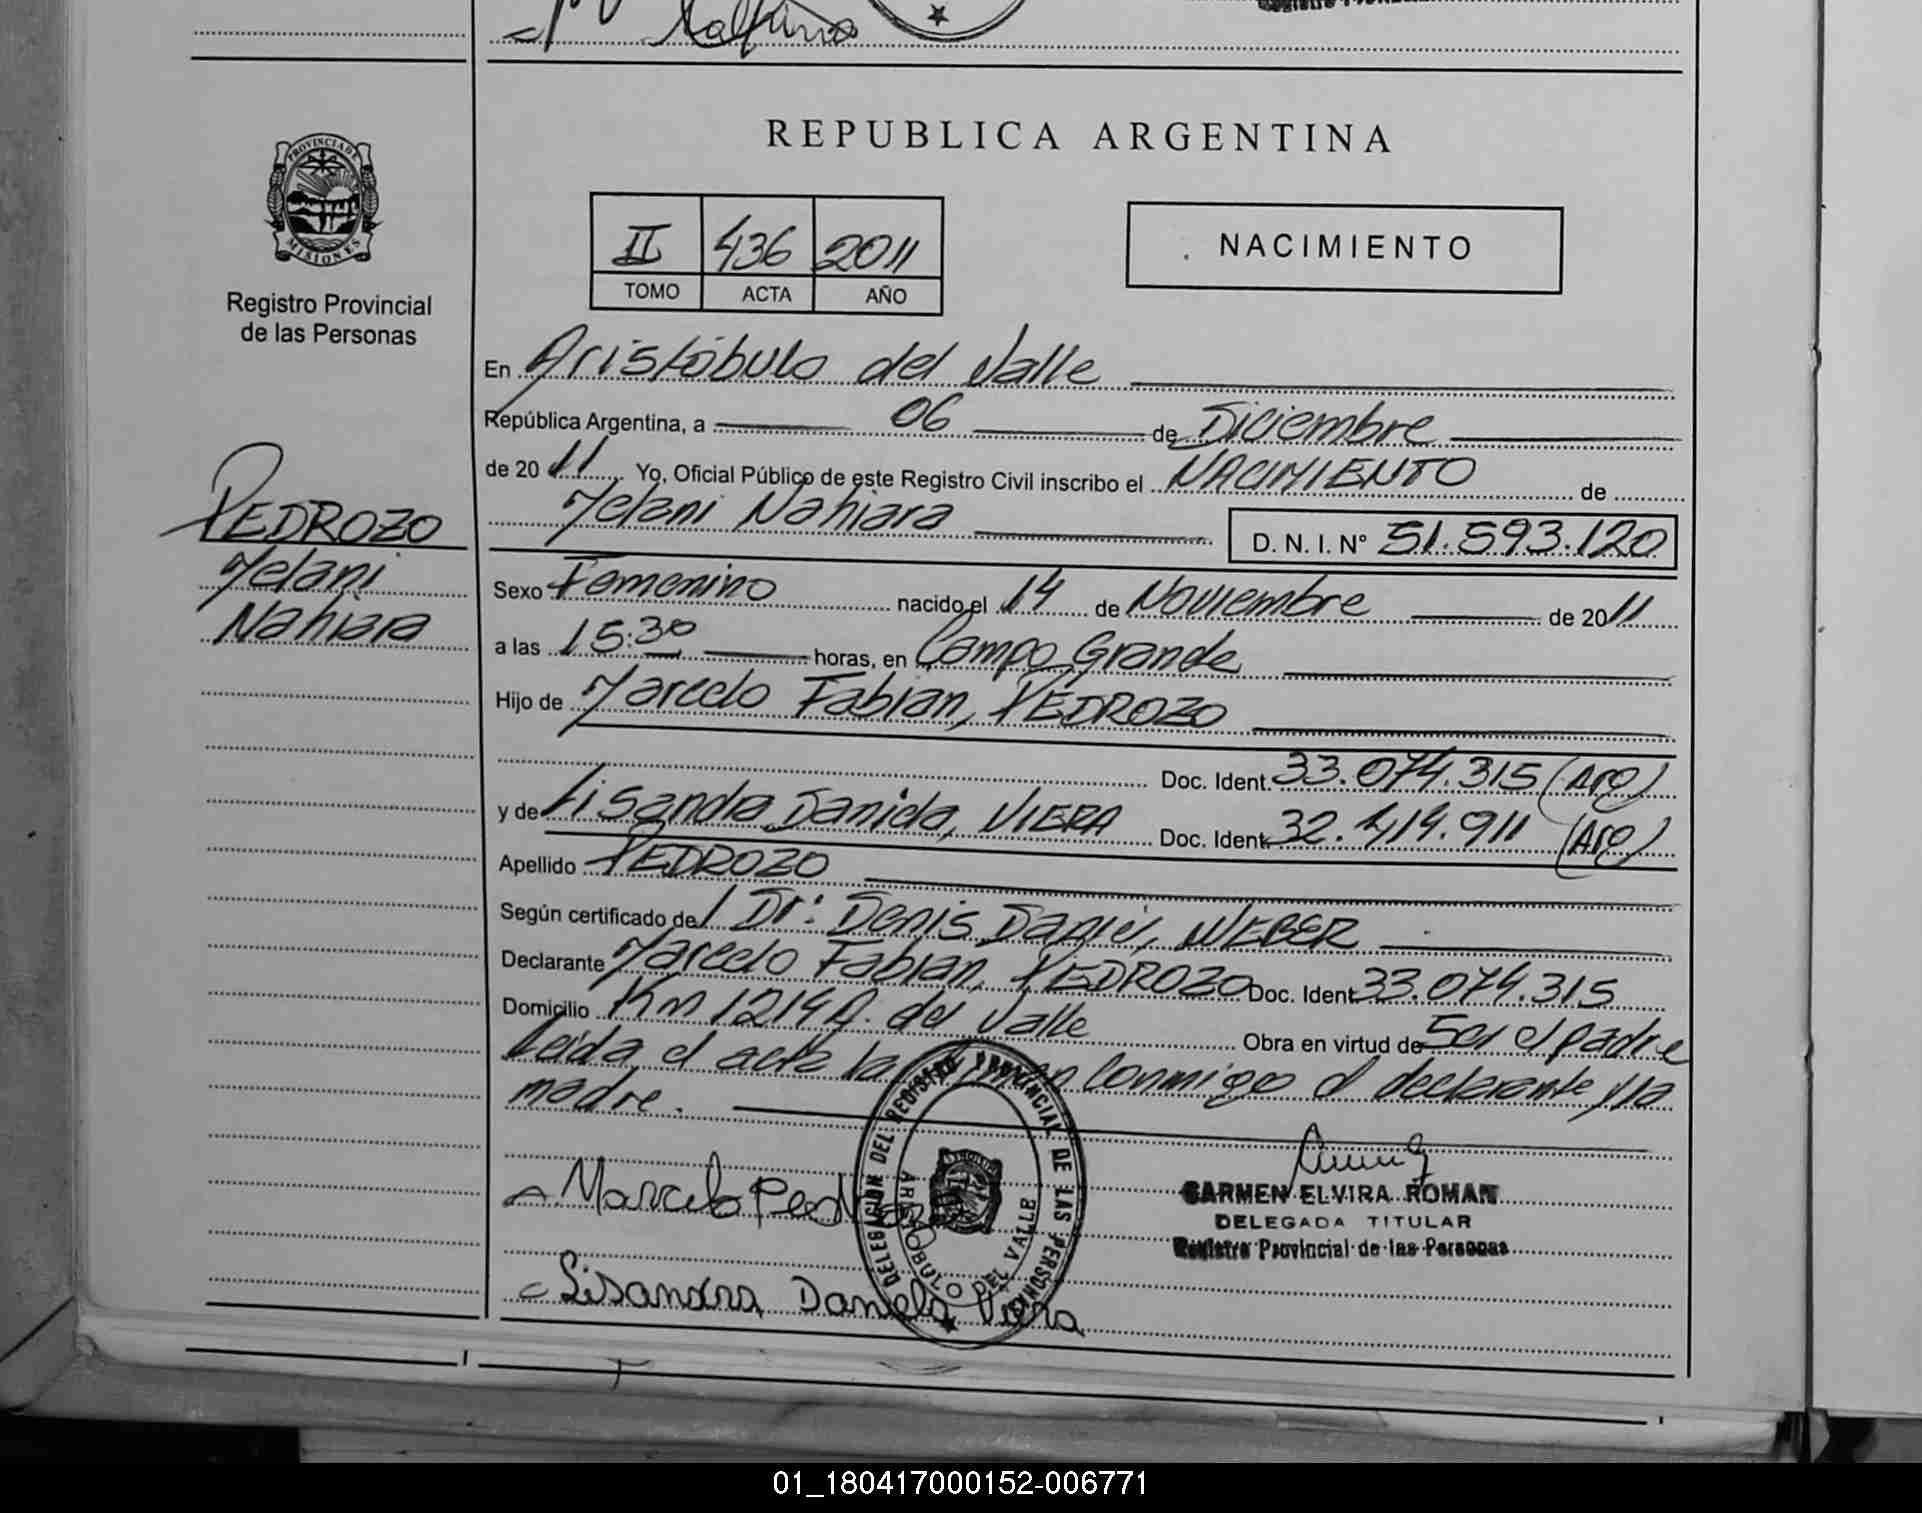 REPUBLICA ARGENTINA
PROVINCIA DE
MISIONES
Registro Provincial
de las Personas
II 436 2011
TOMO ACTA AÑO
NACIMIENTO
En Aristóbulo del Valle
República Argentina, a 06 de Diciembre
de 20 11 Yo, Oficial Público de este Registro Civil inscribo el NACIMIENTO de
Melani Nahiara D. N. I. N° 51.593.120
PEDROZO
Melani
Nahiara
Sexo Femenino nacido el 14 de Noviembre de 20 11
a las 15:30 horas, en Campo Grande
Hijo de Marcelo Fabian, PEDROZO
Doc. Ident. 33.074.315 (ARG)
y de Lisandra Daniela, VIERA Doc. Ident. 32.419.911 (ARG)
Apellido PEDROZO
Según certificado de/ Dr: Denis Daniel, WEBER
Declarante Marcelo Fabian, PEDROZO Doc. Ident. 33.074.315
Domicilio Km 1214 A. del Valle Obra en virtud de Ser el padre
Leída el acta la conmigo el declarante y la
madre.
Marcelo Pedrozo
CARMEN ELVIRA ROMAN
DELEGADA TITULAR
Registro Provincial de las Personas
DELEGACION DEL REGISTRO PROVINCIAL DE LAS PERSONAS
ARISTOBULO DEL VALLE
Lisandra Daniela Viera
01_180417000152-006771